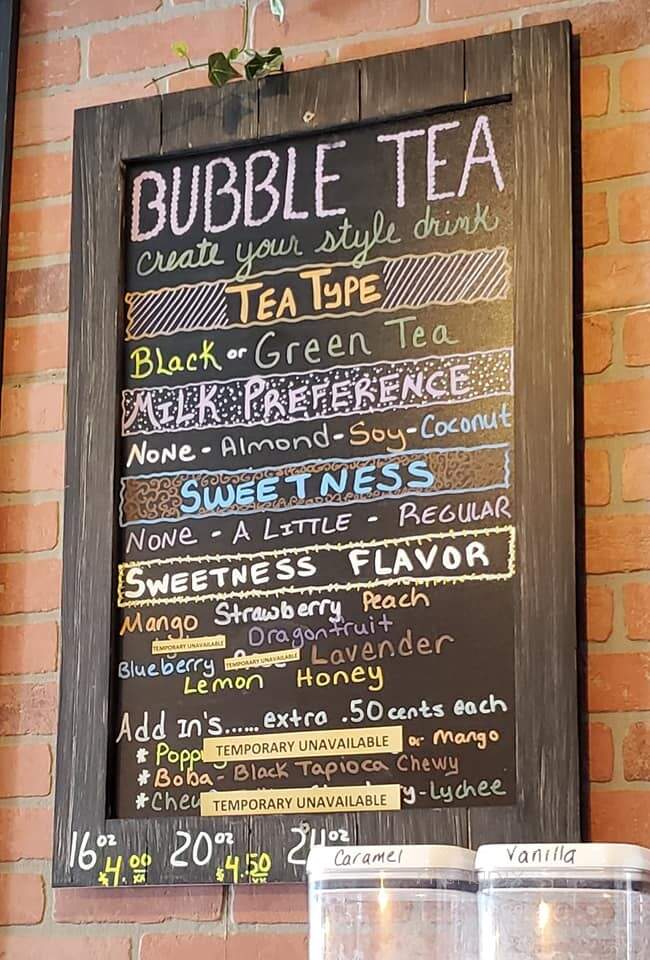 BUBBLE TEA
create your style drink
TEA TYPE
BLack or Green Tea
MILK PREFERENCE
NONE - Almond - Soy - Coconut
SWEETNESS
NONE - A LITTLE - REGULAR
SWEETNESS FLAVOR
Mango Strawberry Peach
TEMPORARY UNAVAILABLE Dragonfruit
Blueberry TEMPORARY UNAVAILABLE Lavender
Lemon Honey
Add In's..... extra .50 cents each
* Popp TEMPORARY UNAVAILABLE or Mango
* Boba - Black Tapioca Chewy
* Chew TEMPORARY UNAVAILABLE y - Lychee
16oz $4.00 20oz $4.50 24oz
Caramel Vanilla